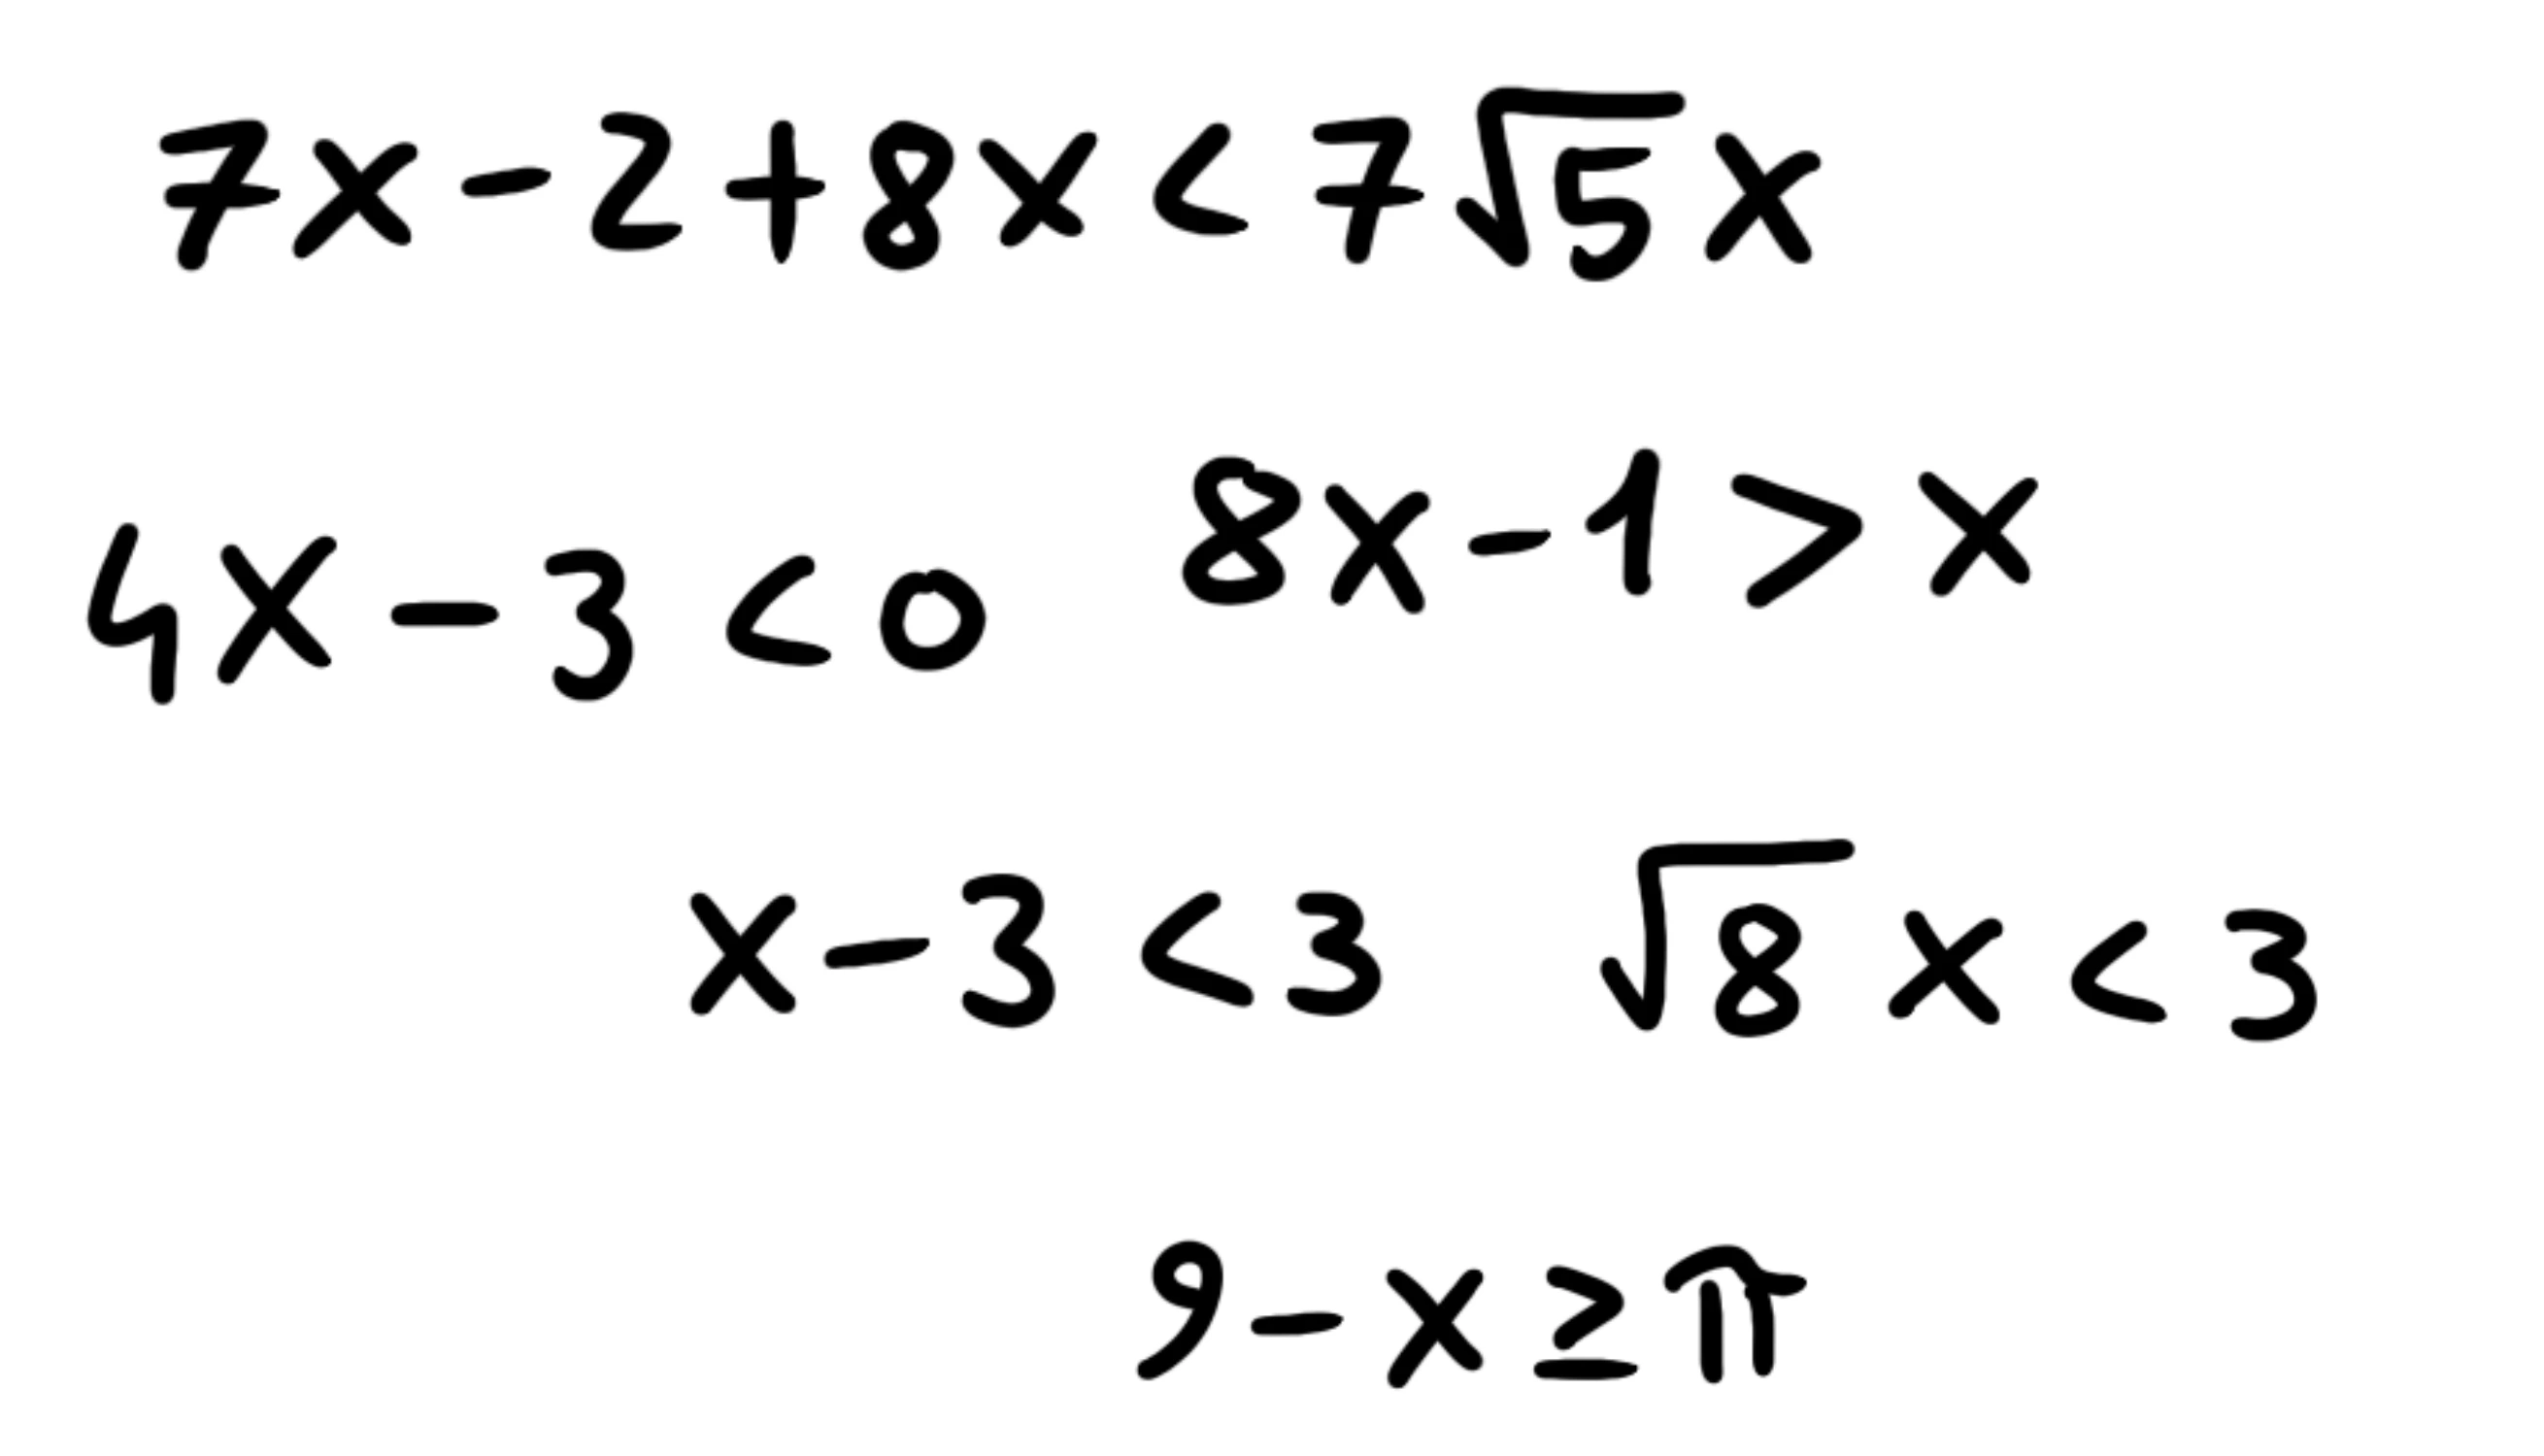 7x-2+8x<7√5x
4x-3<0 8x-1>x
x-3<3 √8x<3
9-x≥π